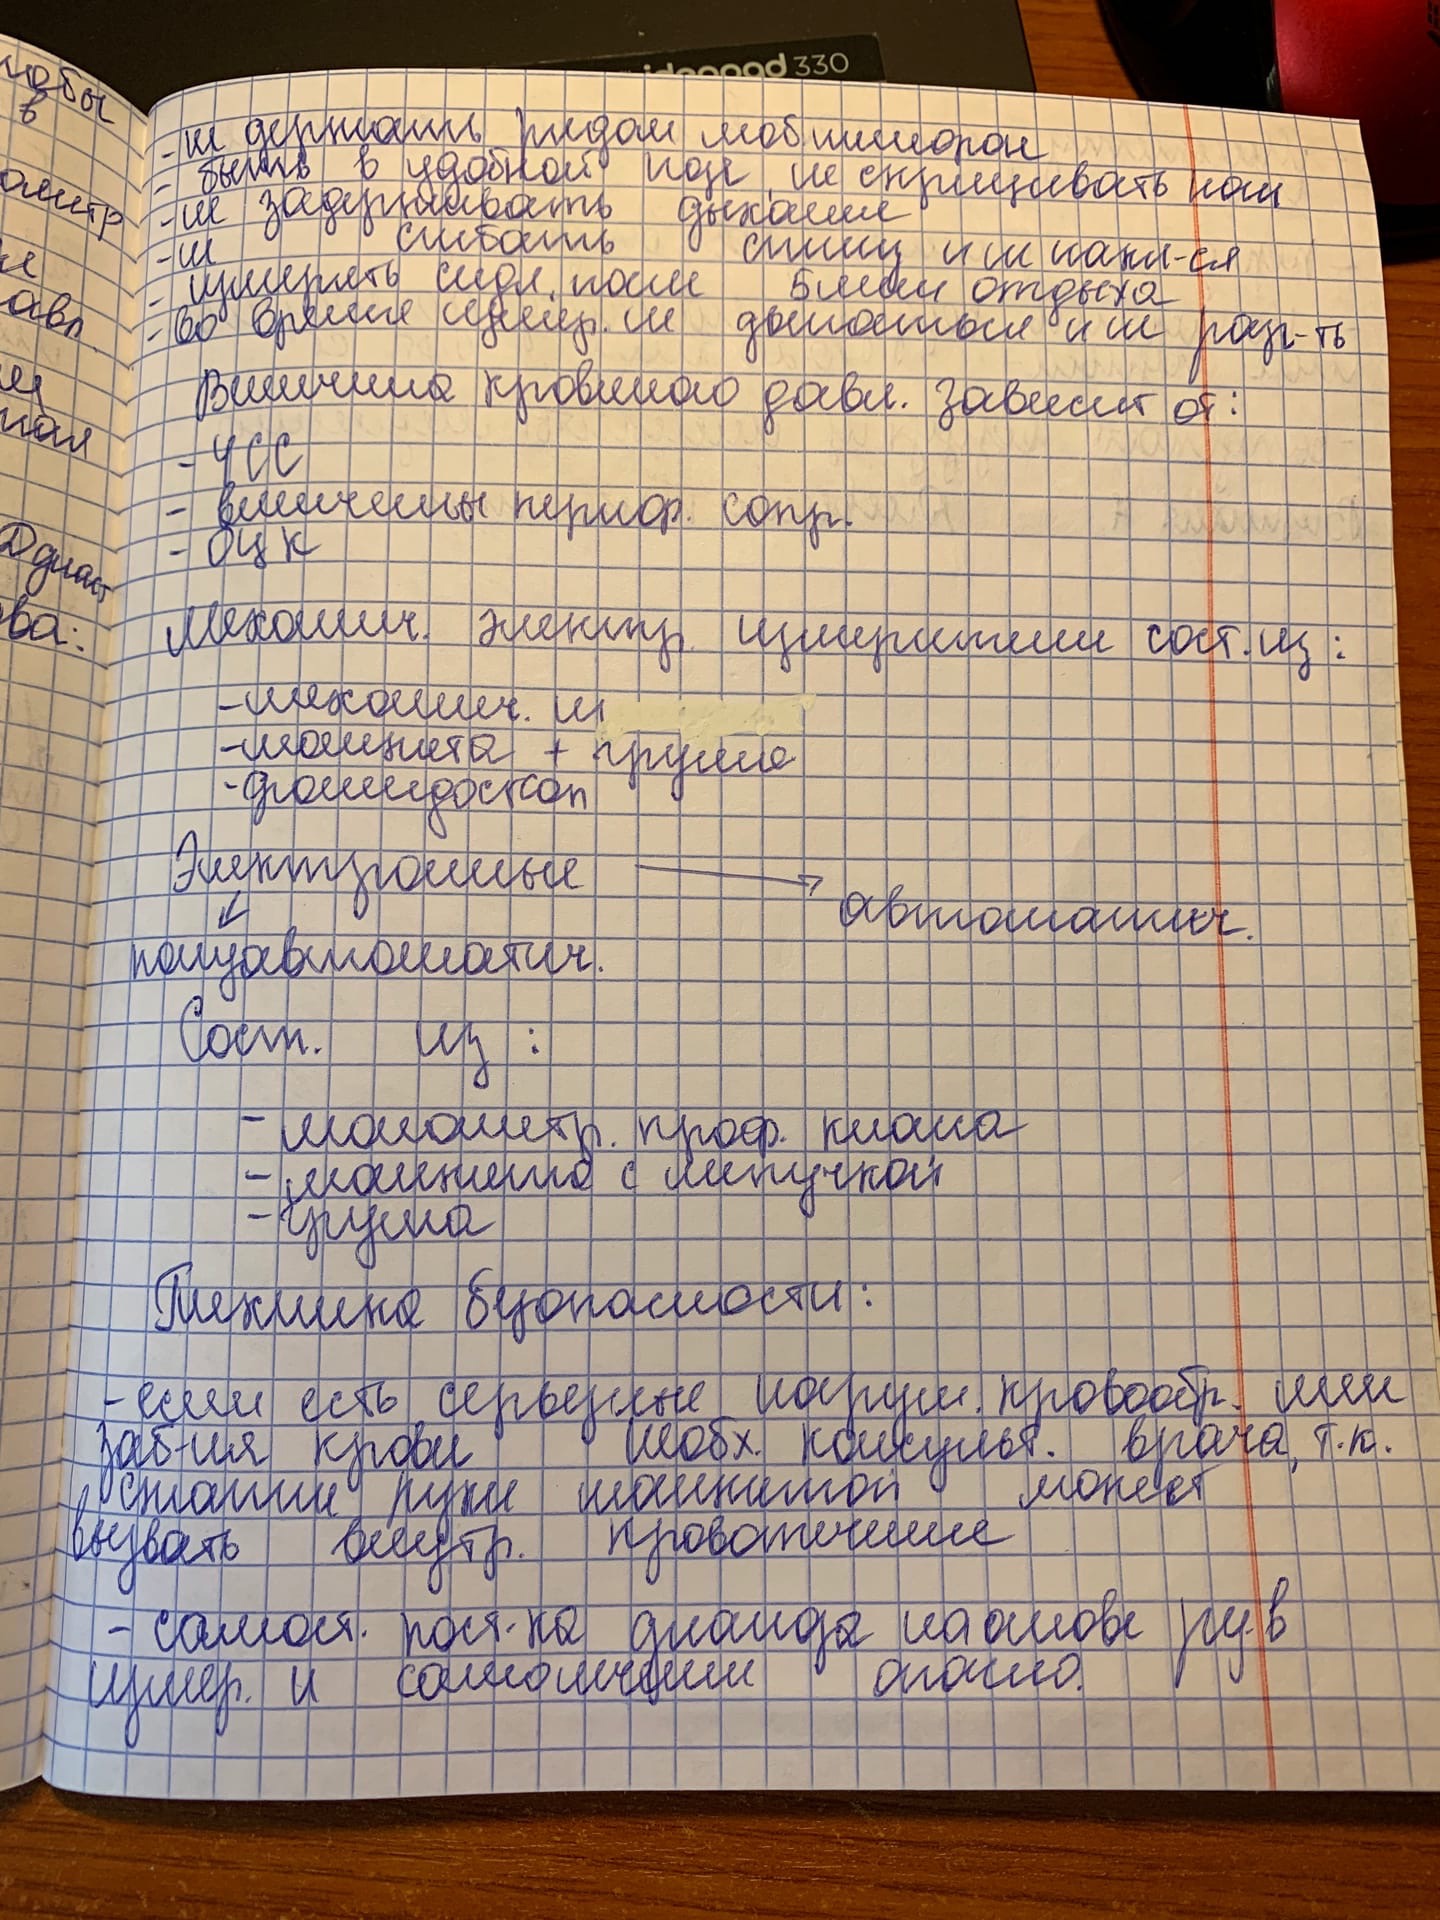 ideapad 330
чобы
в
ометр
не
авл.
ная
Диаст
ва:
- не держать рядом моб телефон
- быть в удобной позе, не скрещивать ноги
- не задерживать дыхание
- не сгибать спину и не накл-ся
- измерять сидя, после 5 мин отдыха
- во время измер. не двигаться и не разг-ть
Величина кровяного давл. зависит от:
- ЧСС
- величины периф. сопр.
- ОЦК
Механич. электр. измерители сост. из:
- механич. м
- манжета + груша
- фонендоскоп
Электронные → автоматич.
↙
полуавтоматич.
Сост. из :
- манометр. проф. клапа
- манжета с липучкой
- груша
Техника безопасности:
- если есть серьезные наруш. кровообр. или
заб-ия крови необх. консульт. врача, т.к.
сжатие руки манжетой может
вызвать внутр. кровотечение
- самост. пост-ка диагноза на основе рез-в
измер. и самолечении опасно.